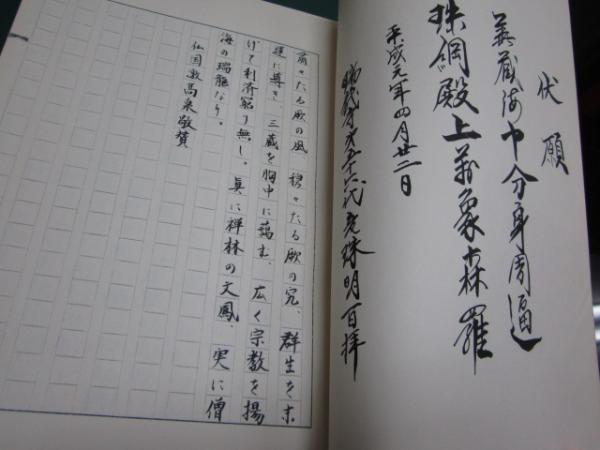 伏願
義蔵海中分身周遍
珠網殿上万象森羅
平成元年四月廿二日
五十六代
明百拝
蕭々たる厥の風、穆々たる厥の容、群生を末
運に導き、三蔵を胸中に蘊む、広く宗教を揚
げて利済窮り無し。真に禅林の文鳳、実に僧
海の瑞龍なり。
仏国敦高泉敬賛